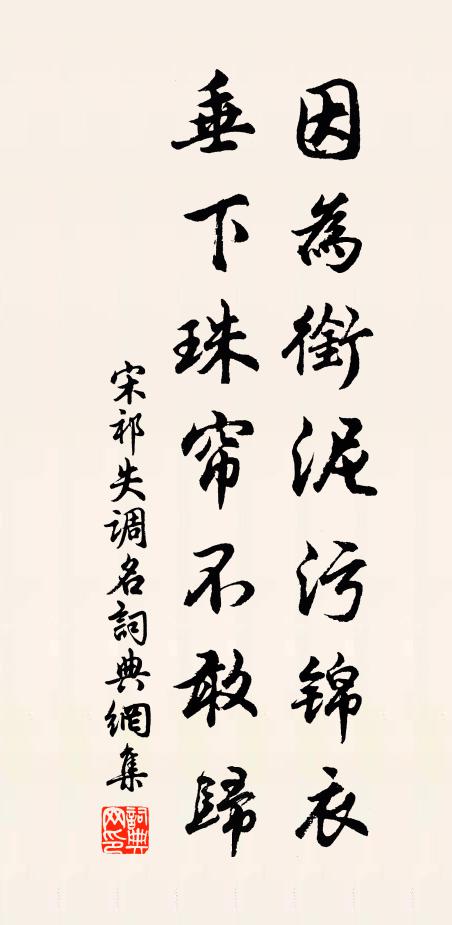 因為銜泥污锦衣
垂下珠帘不敢歸
宋祁失调名詞典網集
詞典网印